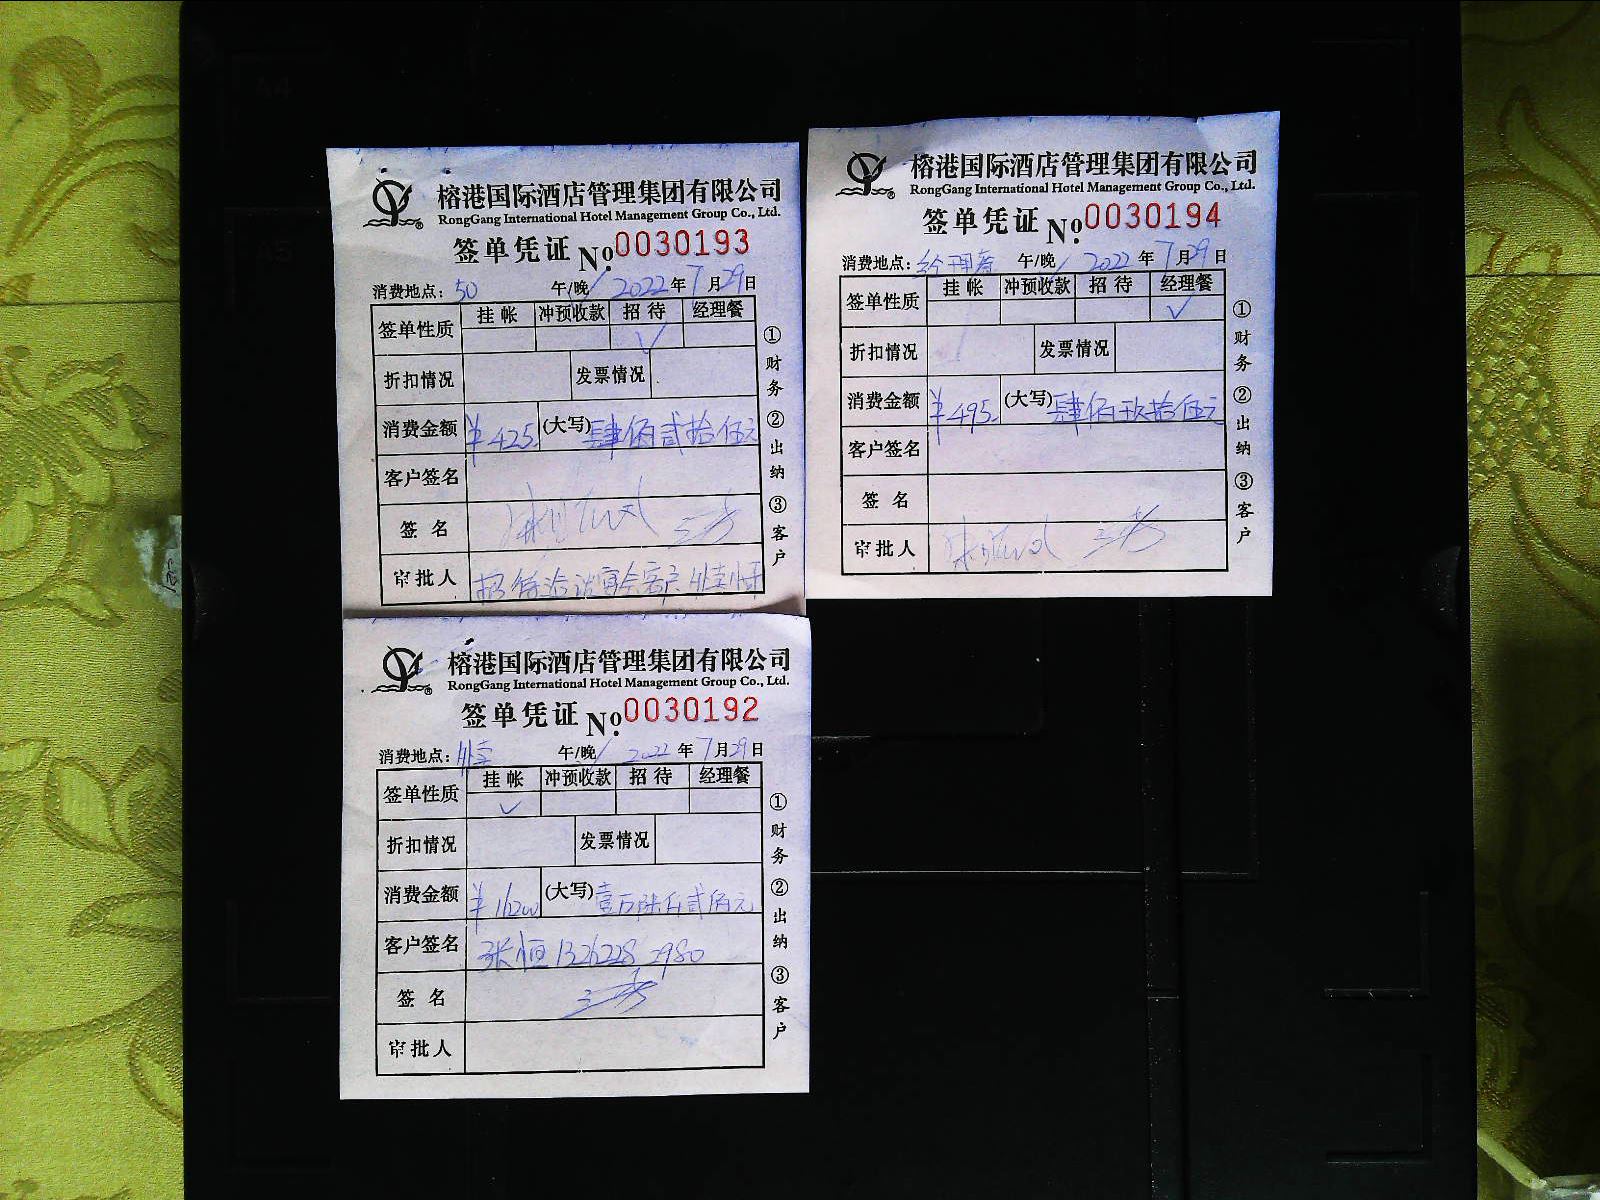 榕港国际酒店管理集团有限公司
RongGang International Hotel Management Group Co., Ltd.
签单凭证 No. 0030193
消费地点: 50 午/晚 2022年7月29日
签单性质 挂帐 冲预收款 招待 经理餐
√
折扣情况 发票情况
消费金额 ¥425. (大写) 肆佰贰拾伍元
客户签名
签名
审批人 招待洽谈宴会客户
①财务 ②出纳 ③客户
榕港国际酒店管理集团有限公司
RongGang International Hotel Management Group Co., Ltd.
签单凭证 No. 0030194
消费地点: 经理餐 午/晚 2022年7月29日
签单性质 挂帐 冲预收款 招待 经理餐
√
折扣情况 发票情况
消费金额 ¥495. (大写) 肆佰玖拾伍元
客户签名
签名
审批人
①财务 ②出纳 ③客户
榕港国际酒店管理集团有限公司
RongGang International Hotel Management Group Co., Ltd.
签单凭证 No. 0030192
消费地点: 外卖 午/晚 2022年7月29日
签单性质 挂帐 冲预收款 招待 经理餐
√
折扣情况 发票情况
消费金额 ¥16200 (大写) 壹万陆仟贰佰元
客户签名 张恒 13262282980
签名
审批人
①财务 ②出纳 ③客户
A4
A5